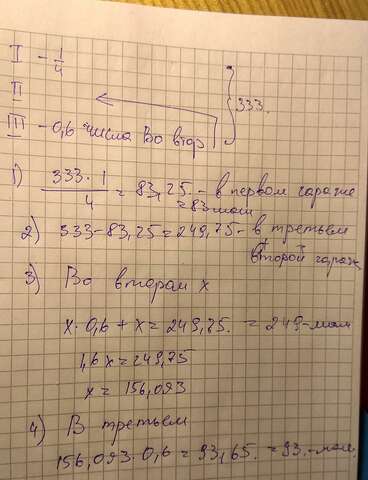 I - 1/4
II
III - 0,6 числа во втор
333.
1) 333·1/4 = 83,25. - в первом гараже
= 83 маш
2) 333-83,25=249,75- в третьем
+
второй гараж
3) Во втором x
x·0,6 + x = 249,75. = 249-маш
1,6x=249,75
x = 156,093
4) В третьем
156,093·0,6 = 93,65. = 93.-маш.